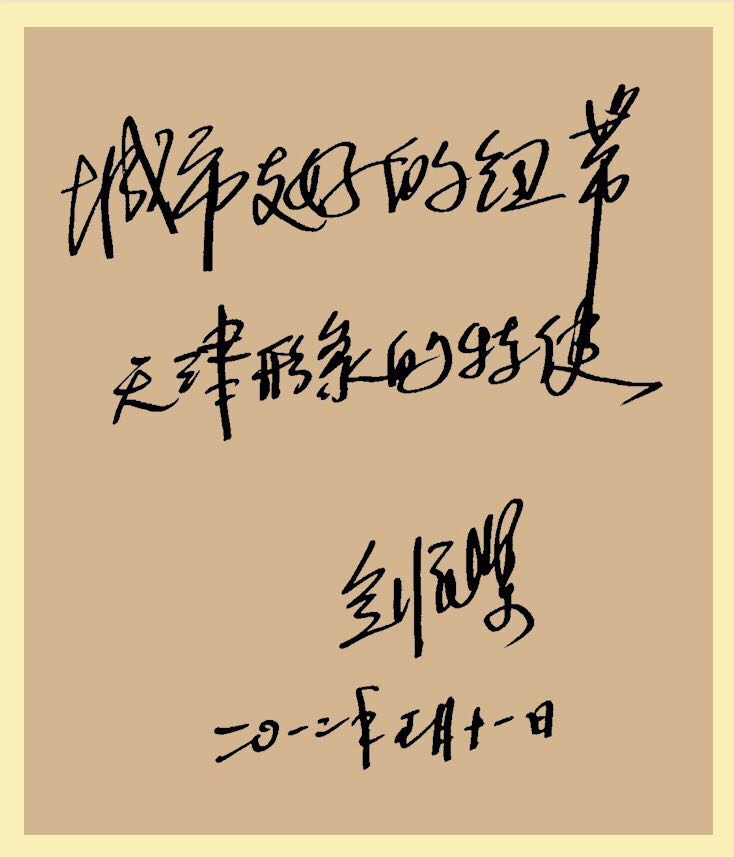 城市友好的纽带
天津形象的特使
二〇一二年五月十一日